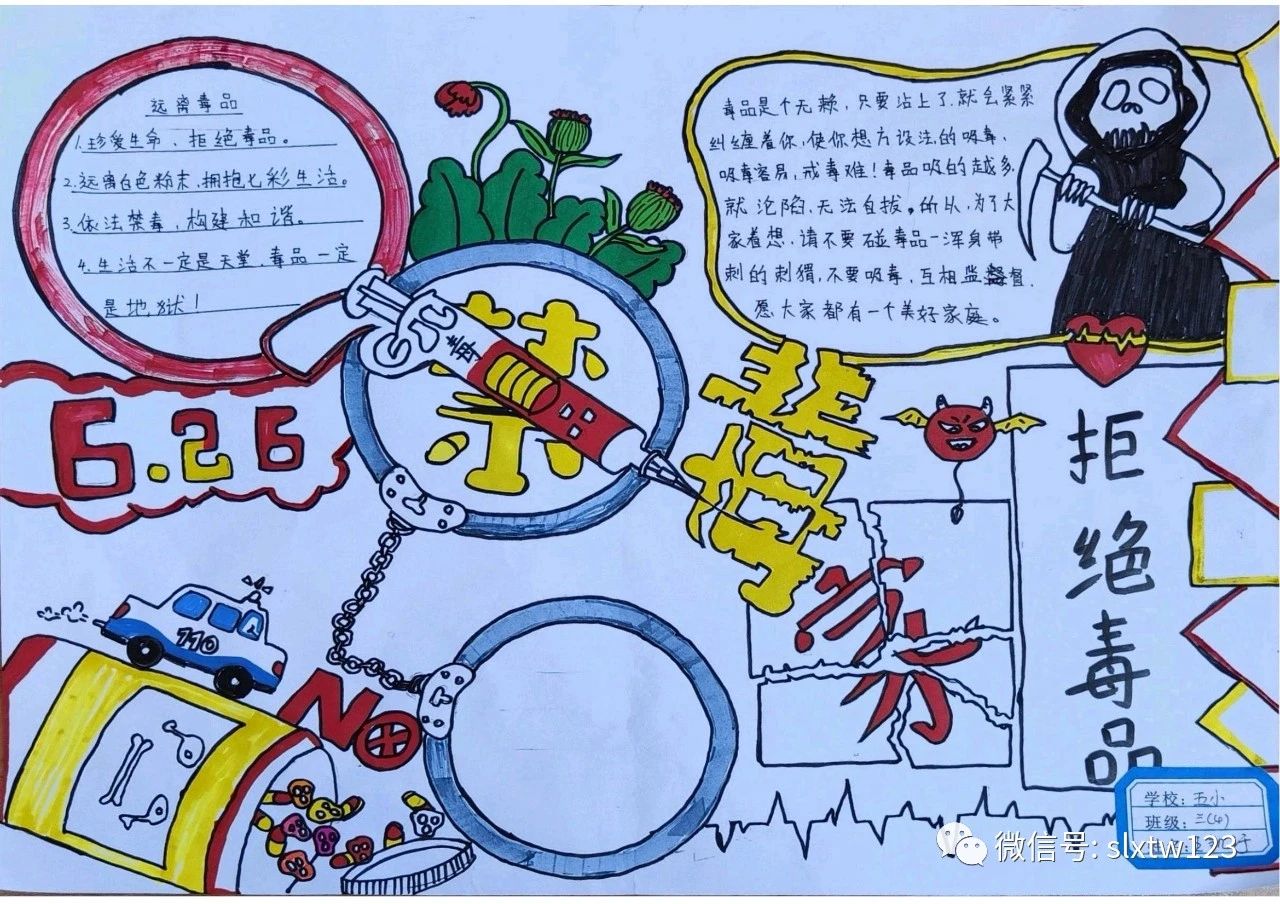 远离毒品
1.珍爱生命、拒绝毒品。
2.远离白色粉末,拥抱七彩生活。
3.依法禁毒,构建和谐。
4.生活不一定是天堂,毒品一定
是地狱!
毒品是个无赖,只要沾上了,就会紧紧
纠缠着你,使你想方设法的吸毒、
吸毒容易,戒毒难!毒品吸的越多,
就沦陷,无法自拔。所以,为了大
家着想,请不要碰毒品一浑身带
刺的刺猬,不要吸毒,互相监督.
愿大家都有一个美好家庭。
6.26
禁
毒
毒
家
拒
绝
毒
品
110
NO
学校:五小
班级:三(4)
微信号: slxtw123